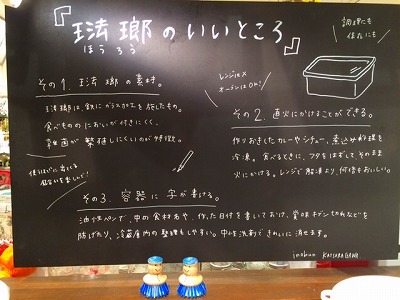 『琺瑯のいいところ』
ほうろう
調理にも
保存にも
その1. 琺瑯の素材。
レンジは×
オーブンはOK!
琺瑯は、鉄にガラス加工を施したもの。
食べもののにおいが付きにくく、
雑菌が繁殖しにくいのが特徴。
その2. 直火にかけることができる。
作りおきしたカレーやシチュー、煮込み料理を
冷凍。食べるときに、フタをはずしてそのまま
火にかける。レンジで解凍より、何倍もおいしい。
その3. 容器に字が書ける。
油性ペンで、中の食材名や、作った日付を書いておけば、賞味キゲン切れなどを
防げたり、冷蔵庫内の整理もしやすい。中性洗剤できれいに消せます。
inobun KATSURAGAWA